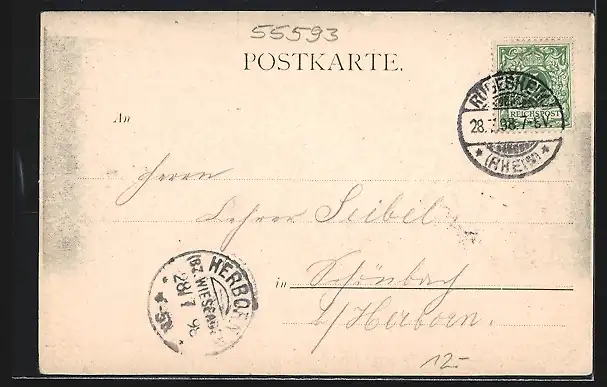 55593
POSTKARTE.
REICHSPOST
RÜDESHEIM
28.7.98.7-8V.
* (RHEIN) *
An
Herrn
Lehrer Seibel.
in Schönbach
b/Herborn.
HERBORN
(BZ WIESBADEN)
28/7 98
12.-